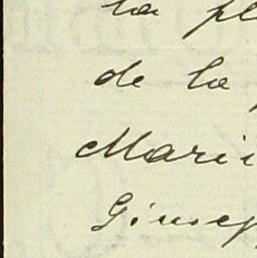 la pl
de la
Mari
Giusep